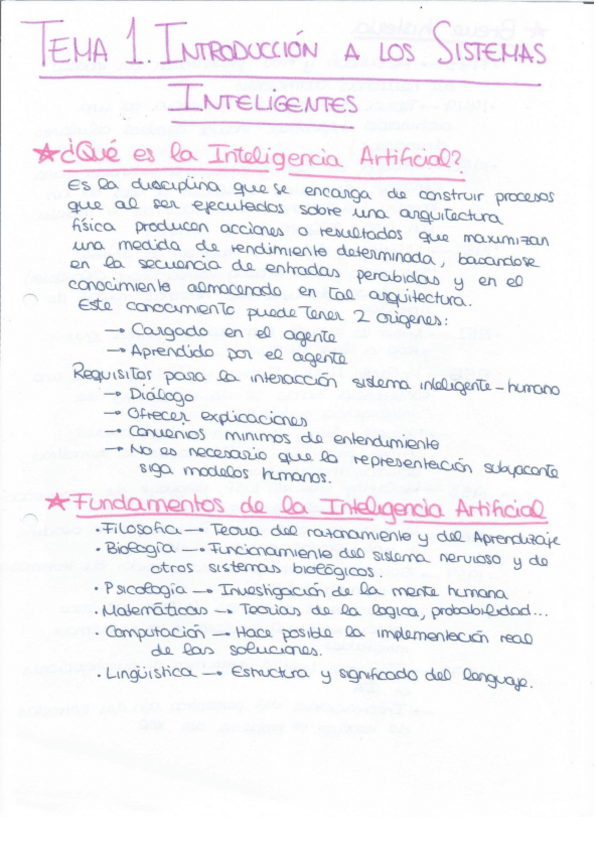 TEMA 1. INTRODUCCIÓN A LOS SISTEMAS
INTELIGENTES
★ ¿Qué es la Inteligencia Artificial?
Es la disciplina que se encarga de construir procesos
que al ser ejecutados sobre una arquitectura
física producen acciones o resultados que maximizan
una medida de rendimiento determinada, basándose
en la secuencia de entradas percibidas y en el
conocimiento almacenado en tal arquitectura.
Este conocimiento puede tener 2 orígenes:
→ Cargado en el agente
→ Aprendido por el agente
Requisitos para la interacción sistema inteligente-humano
→ Diálogo
→ Ofrecer explicaciones
→ Convenios mínimos de entendimiento
→ No es necesario que la representación subyacente
siga modelos humanos.
★ Fundamentos de la Inteligencia Artificial
· Filosofía → Teoría del razonamiento y del Aprendizaje
· Biología → Funcionamiento del sistema nervioso y de
otros sistemas biológicos.
· Psicología → Investigación de la mente humana
· Matemáticas → Teorías de la lógica, probabilidad...
· Computación → Hace posible la implementación real
de las soluciones.
· Lingüística → Estructura y significado del lenguaje.